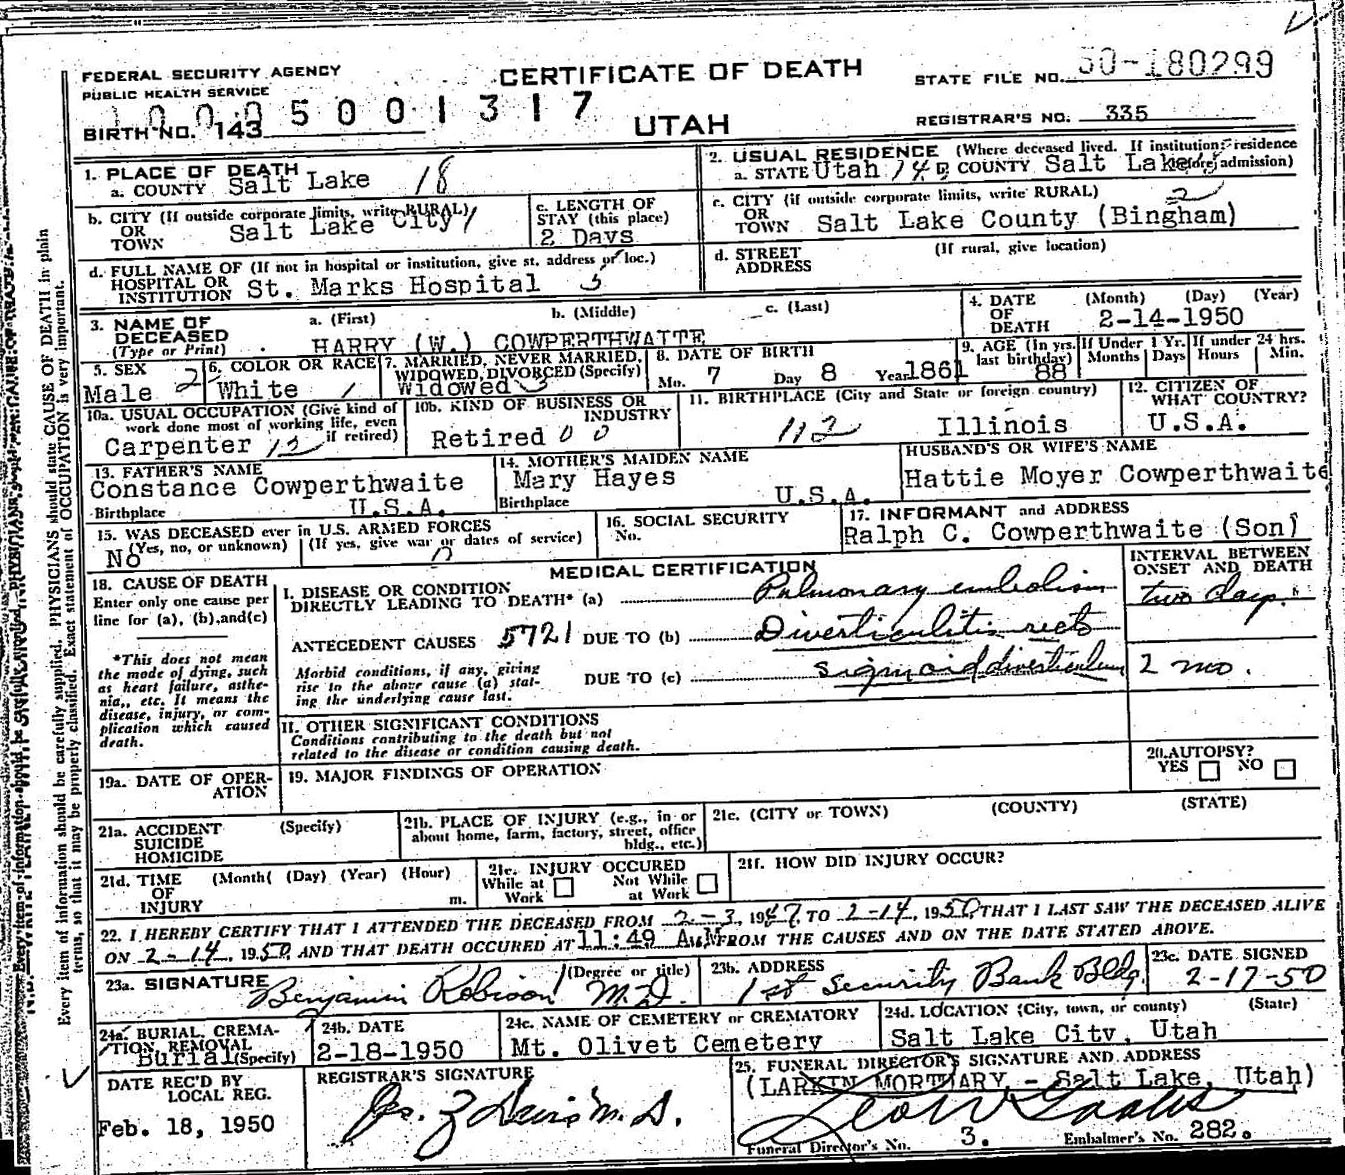 FEDERAL SECURITY AGENCY
PUBLIC HEALTH SERVICE
CERTIFICATE OF DEATH
STATE FILE NO. 50-180299
5 0 0 1 3 1 7
BIRTH NO. 143
UTAH
REGISTRAR'S NO. 335
1. PLACE OF DEATH
a. COUNTY Salt Lake 18
2. USUAL RESIDENCE (Where deceased lived. If institution: residence before admission)
a. STATE Utah 14 b. COUNTY Salt Lake
b. CITY (If outside corporate limits, write RURAL)
OR
TOWN Salt Lake City 1
c. LENGTH OF
STAY (this place)
2 Days
c. CITY (if outside corporate limits, write RURAL) 2
OR
TOWN Salt Lake County (Bingham)
d. FULL NAME OF (If not in hospital or institution, give st. address or loc.)
HOSPITAL OR
INSTITUTION St. Marks Hospital 5
d. STREET
ADDRESS
(If rural, give location)
3. NAME OF
DECEASED
(Type or Print)
a. (First) b. (Middle) c. (Last)
HARRY (W.) COWPERTHWAITE
4. DATE
OF
DEATH
(Month) (Day) (Year)
2-14-1950
5. SEX
Male 2
6. COLOR OR RACE
White 1
7. MARRIED, NEVER MARRIED,
WIDOWED, DIVORCED (Specify)
Widowed 3
8. DATE OF BIRTH
Mo. 7 Day 8 Year 1861
9. AGE (In yrs.
last birthday)
88
If Under 1 Yr.
Months Days
If under 24 hrs.
Hours Min.
10a. USUAL OCCUPATION (Give kind of
work done most of working life, even
if retired)
Carpenter 12
10b. KIND OF BUSINESS OR
INDUSTRY
Retired 0 0
11. BIRTHPLACE (City and State or foreign country)
112 Illinois
12. CITIZEN OF
WHAT COUNTRY?
U.S.A.
13. FATHER'S NAME
Constance Cowperthwaite
Birthplace U.S.A.
14. MOTHER'S MAIDEN NAME
Mary Hayes
Birthplace U.S.A.
HUSBAND'S OR WIFE'S NAME
Hattie Moyer Cowperthwaite
15. WAS DECEASED ever in U.S. ARMED FORCES
(Yes, no, or unknown) (If yes, give war or dates of service)
No 0
16. SOCIAL SECURITY
No.
17. INFORMANT and ADDRESS
Ralph C. Cowperthwaite (Son)
18. CAUSE OF DEATH
Enter only one cause per
line for (a), (b), and (c)
*This does not mean
the mode of dying, such
as heart failure, asthe-
nia,, etc. It means the
disease, injury, or com-
plication which caused
death.
MEDICAL CERTIFICATION
INTERVAL BETWEEN
ONSET AND DEATH
I. DISEASE OR CONDITION
DIRECTLY LEADING TO DEATH* (a) Pulmonary embolism two days.
ANTECEDENT CAUSES 5721 DUE TO (b) Diverticulitis recto
Morbid conditions, if any, giving
rise to the above cause (a) stat-
ing the underlying cause last.
DUE TO (c) sigmoid diverticulum 2 mo.
II. OTHER SIGNIFICANT CONDITIONS
Conditions contributing to the death but not
related to the disease or condition causing death.
19a. DATE OF OPER-
ATION
19. MAJOR FINDINGS OF OPERATION
20. AUTOPSY?
YES NO
21a. ACCIDENT
SUICIDE
HOMICIDE
(Specify)
21b. PLACE OF INJURY (e.g., in or
about home, farm, factory, street, office
bldg., etc.)
21c. (CITY or TOWN) (COUNTY) (STATE)
21d. TIME
OF
INJURY
(Month( (Day) (Year) (Hour)
m.
21e. INJURY OCCURED
While at
Work
Not While
at Work
21f. HOW DID INJURY OCCUR?
22. I HEREBY CERTIFY THAT I ATTENDED THE DECEASED FROM 2-3, 1947, TO 2-14, 1950, THAT I LAST SAW THE DECEASED ALIVE
ON 2-14, 1950, AND THAT DEATH OCCURED AT 11:49 A.M FROM THE CAUSES AND ON THE DATE STATED ABOVE.
23a. SIGNATURE (Degree or title)
Benjamin Robison M.D.
23b. ADDRESS
1st Security Bank Bldg.
23c. DATE SIGNED
2-17-50
24a. BURIAL, CREMA-
TION REMOVAL
Burial (Specify)
24b. DATE
2-18-1950
24c. NAME OF CEMETERY or CREMATORY
Mt. Olivet Cemetery
24d. LOCATION (City, town, or county) (State)
Salt Lake City, Utah
DATE REC'D BY
LOCAL REG.
Feb. 18, 1950
REGISTRAR'S SIGNATURE
25. FUNERAL DIRECTOR'S SIGNATURE AND ADDRESS
(LARKIN MORTUARY - Salt Lake, Utah)
Funeral Director's No. 3. Embalmer's No. 282.
Every item of information should be carefully supplied. PHYSICIANS should state CAUSE OF DEATH in plain
terms, so that it may be properly classified. Exact statement of OCCUPATION is very important.